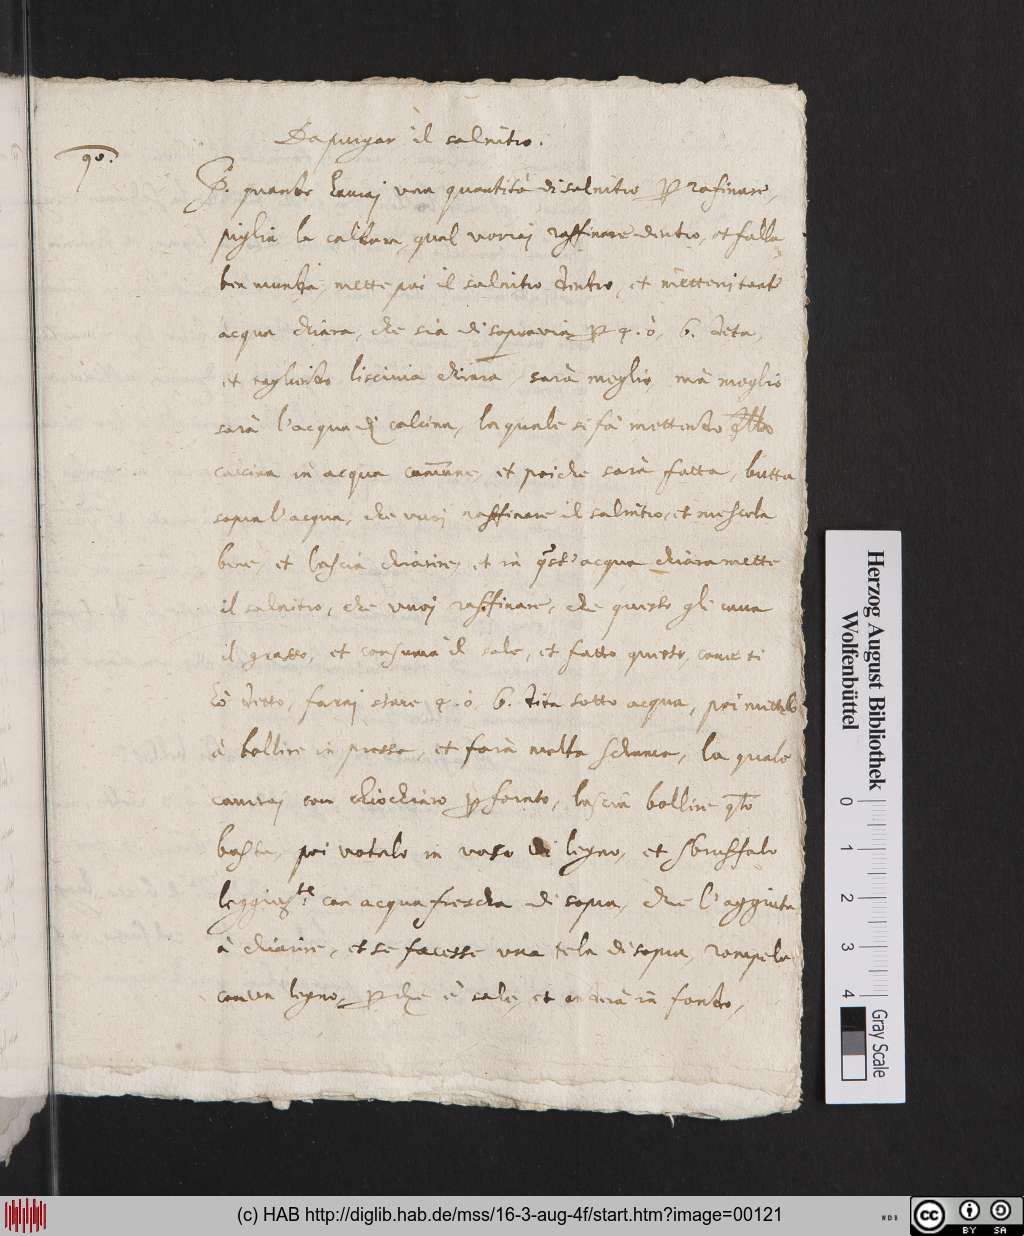 Da purgar il salnitro.
90.
P. quando haurai una quantità di salnitro p rafinare,
piglia la caldara, qual vorrai raffinare dentro, et falla
ben munda, mette poi il salnitro dentro, et metteui tant'
acqua chiara, che sia di sopravia p 4. ò, 6. deta,
et togliendo liscivia chiara, sarà meglio, mà meglio
sarà l'acqua di calcina, la quale si fà mettendo
calcina in acqua comune, et poiche sarà fatta, butta
sopra l'acqua, che vuoi raffinare il salnitro, et mescola
bene, et lascia chiarire, et in qst' acqua chiara mette
il salnitro, che vuoi raffinare, che questo gli caua
il grasso, et consuma il sale, et fatto questo, come ti
hò detto, farai stare 4. ò, 6. dita sotto acqua, poi mettelo
à bollire in pressa, et farà molta schiuma, la quale
cauerai con chiochiaro p forato, lascia bollire qto
basta, poi votalo in vaso di legno, et sbruffalo
leggierte con acqua frescha di sopra, che l'aggiuta
à chiarire, et se facesse una tela di sopra, rompela
con un legno, p che è sale, et anderà in fondo,
Herzog August Bibliothek
Wolfenbüttel
0 1 2 3 4
Gray Scale
(c) HAB http://diglib.hab.de/mss/16-3-aug-4f/start.htm?image=00121
cc BY SA